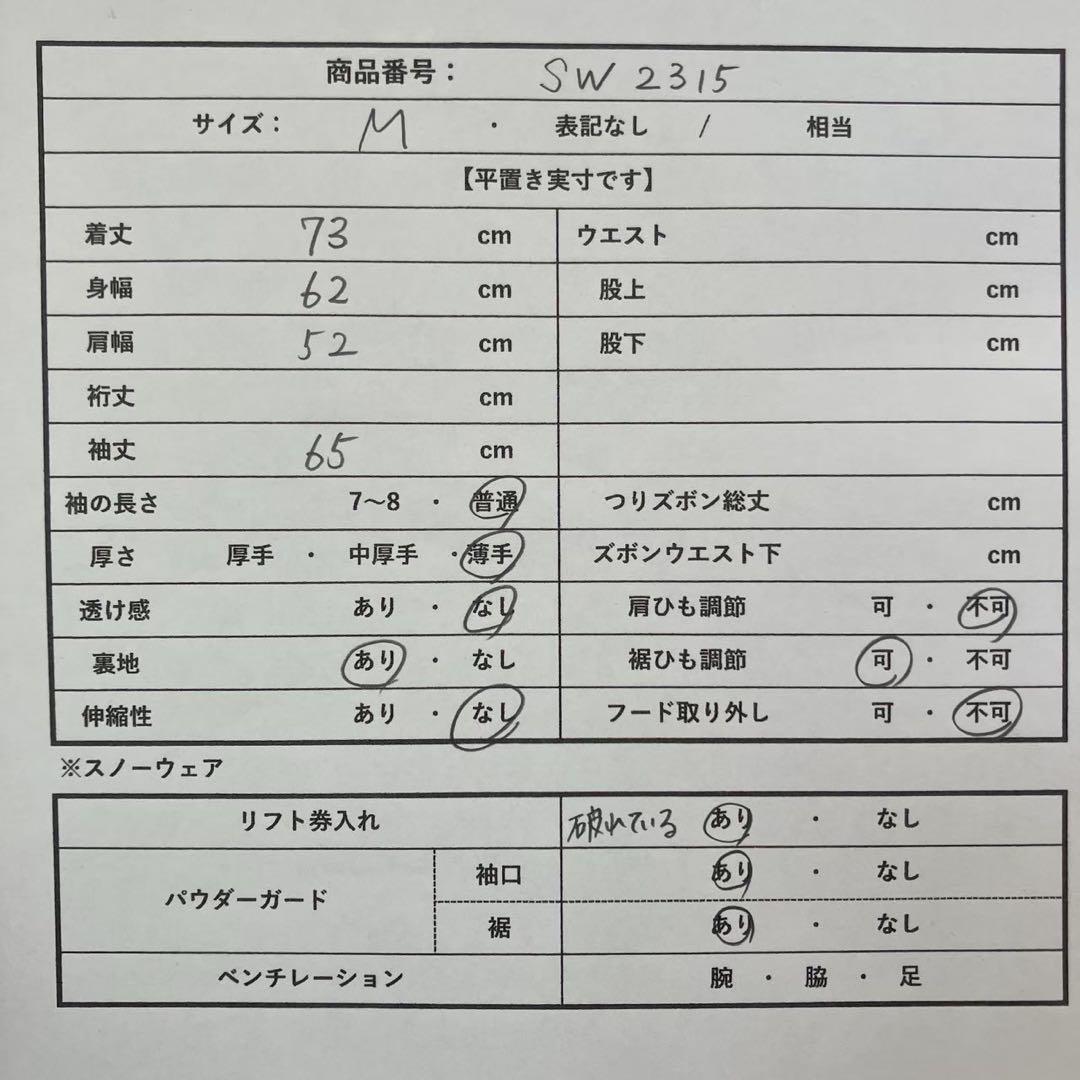 商品番号： SW 2315
サイズ： M ・ 表記なし / 相当
【平置き実寸です】
着丈 73 cm ウエスト cm
身幅 62 cm 股上 cm
肩幅 52 cm 股下 cm
裄丈 cm
袖丈 65 cm
袖の長さ 7〜8 ・ 普通 つりズボン総丈 cm
厚さ 厚手 ・ 中厚手 ・ 薄手 ズボンウエスト下 cm
透け感 あり ・ なし 肩ひも調節 可 ・ 不可
裏地 あり ・ なし 裾ひも調節 可 ・ 不可
伸縮性 あり ・ なし フード取り外し 可 ・ 不可
※スノーウェア
リフト券入れ 破れている あり ・ なし
パウダーガード 袖口 あり ・ なし
裾 あり ・ なし
ベンチレーション 腕 ・ 脇 ・ 足